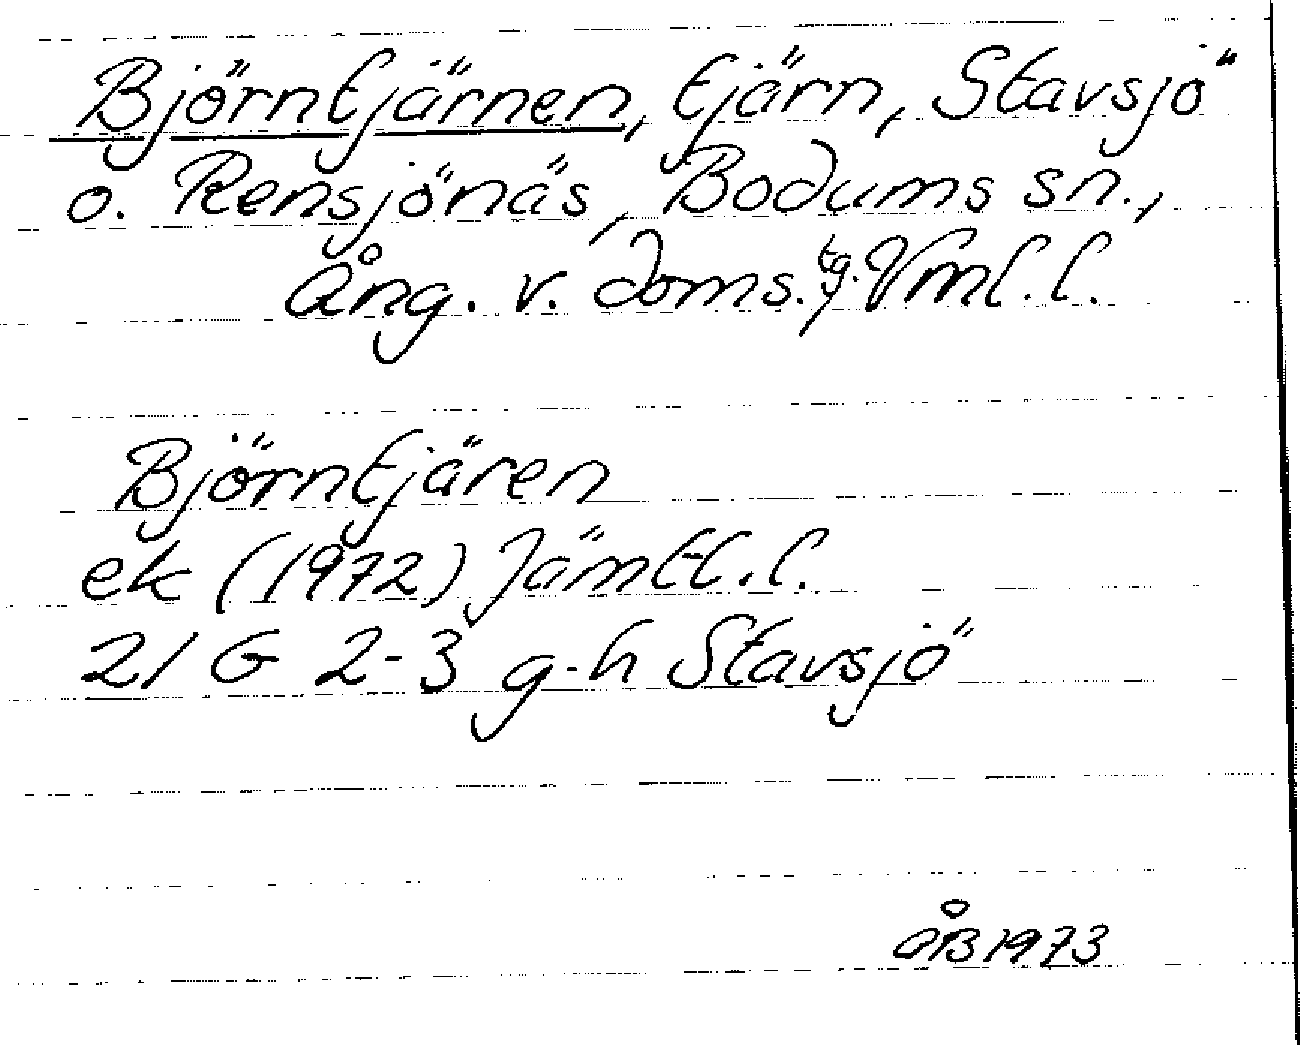 Björntjärnen, tjärn, Stavsjö
o. Rensjönäs, Bodums sn.,
Ång. v. doms. tg. Vml. l.
Björntjären
ek (1972) Jämtl. l.
21 G 2-3 g-h Stavsjö
ÅB 1973